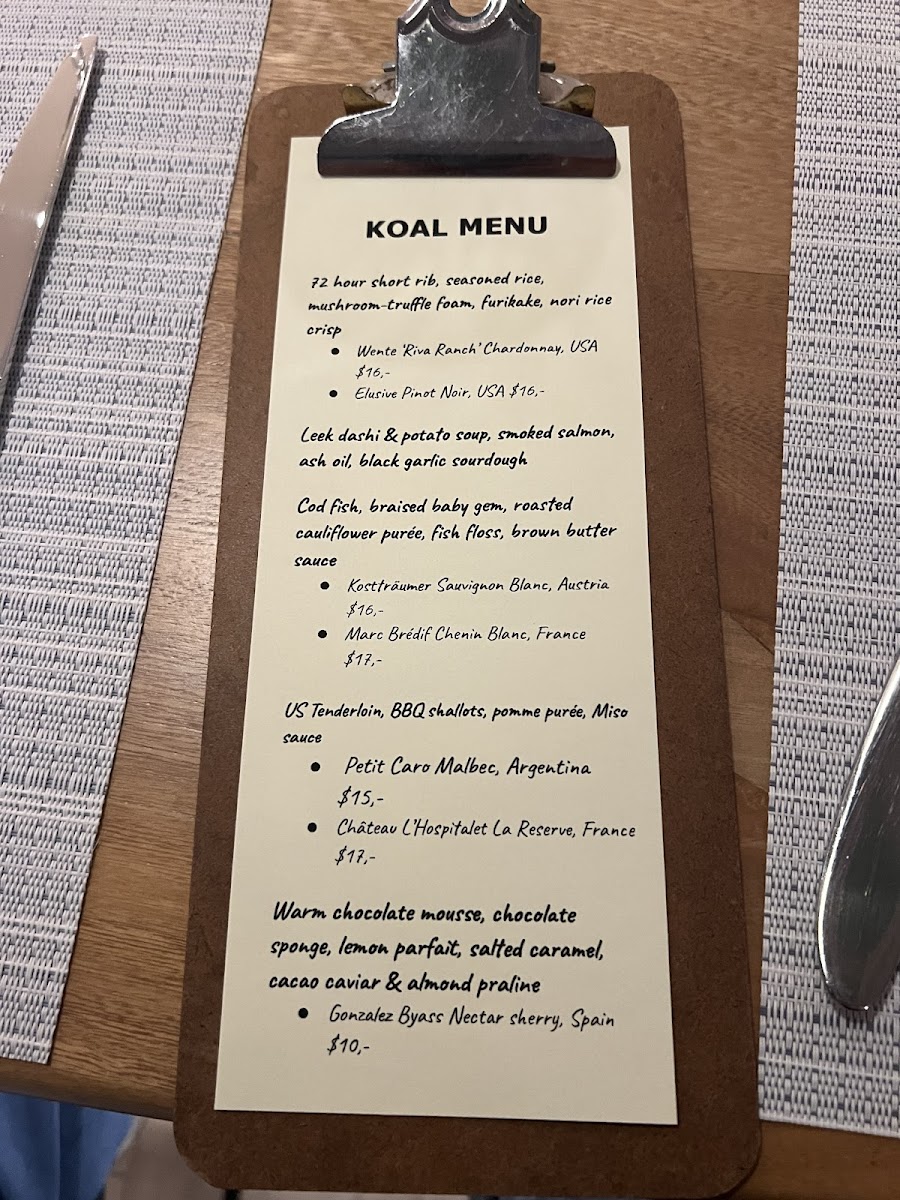 KOAL MENU
72 hour short rib, seasoned rice,
mushroom-truffle foam, furikake, nori rice
crisp
● Wente 'Riva Ranch' Chardonnay, USA
$16,-
● Elusive Pinot Noir, USA $16,-
Leek dashi & potato soup, smoked salmon,
ash oil, black garlic sourdough
Cod fish, braised baby gem, roasted
cauliflower purée, fish floss, brown butter
sauce
● Kostträumer Sauvignon Blanc, Austria
$16,-
● Marc Brédif Chenin Blanc, France
$17,-
US Tenderloin, BBQ shallots, pomme purée, Miso
sauce
● Petit Caro Malbec, Argentina
$15,-
● Château L'Hospitalet La Reserve, France
$17,-
Warm chocolate mousse, chocolate
sponge, lemon parfait, salted caramel,
cacao caviar & almond praline
● Gonzalez Byass Nectar sherry, Spain
$10,-